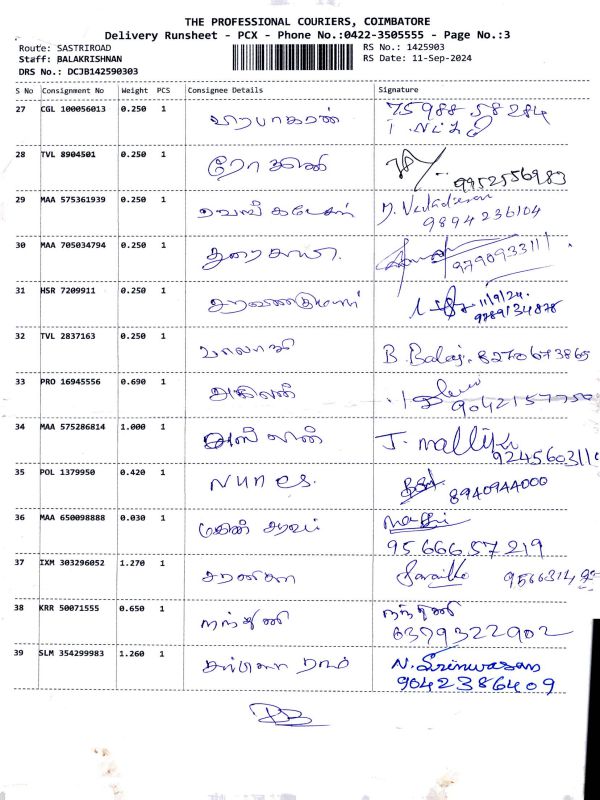 THE PROFESSIONAL COURIERS, COIMBATORE
Delivery Runsheet - PCX - Phone No.:0422-3505555 - Page No.:3
Route: SASTRIROAD
RS No.: 1425903
Staff: BALAKRISHNAN
RS Date: 11-Sep-2024
DRS No.: DCJB142590303
S No Consignment No Weight PCS Consignee Details Signature
27 CGL 100056013 0.250 1 பிரபாகரன் 75988 58284
28 TVL 8904501 0.250 1 ரோகிணி
9952556983
29 MAA 575361939 0.250 1 வெங்கடேசன்
9894236104
30 MAA 705034794 0.250 1 துரைசாமி.
9790933111
31 HSR 7209911 0.250 1 சரவணகுமார் 11/9/24.
9789134878
32 TVL 2837163 0.250 1 பாலாஜி B. Balaji. 8270673865
33 PRO 16945556 0.690 1 அகிலன்
34 MAA 575286814 1.000 1 J. mallika
35 POL 1379950 0.420 1 Nunes. 8940944000
36 MAA 650098888 0.030 1
95666 57219
37 IXM 303296052 1.270 1
38 KRR 50071555 0.650 1 நந்தினி நந்தினி
6379322902
39 SLM 354299983 1.260 1 N. Srinivasan
9042386409